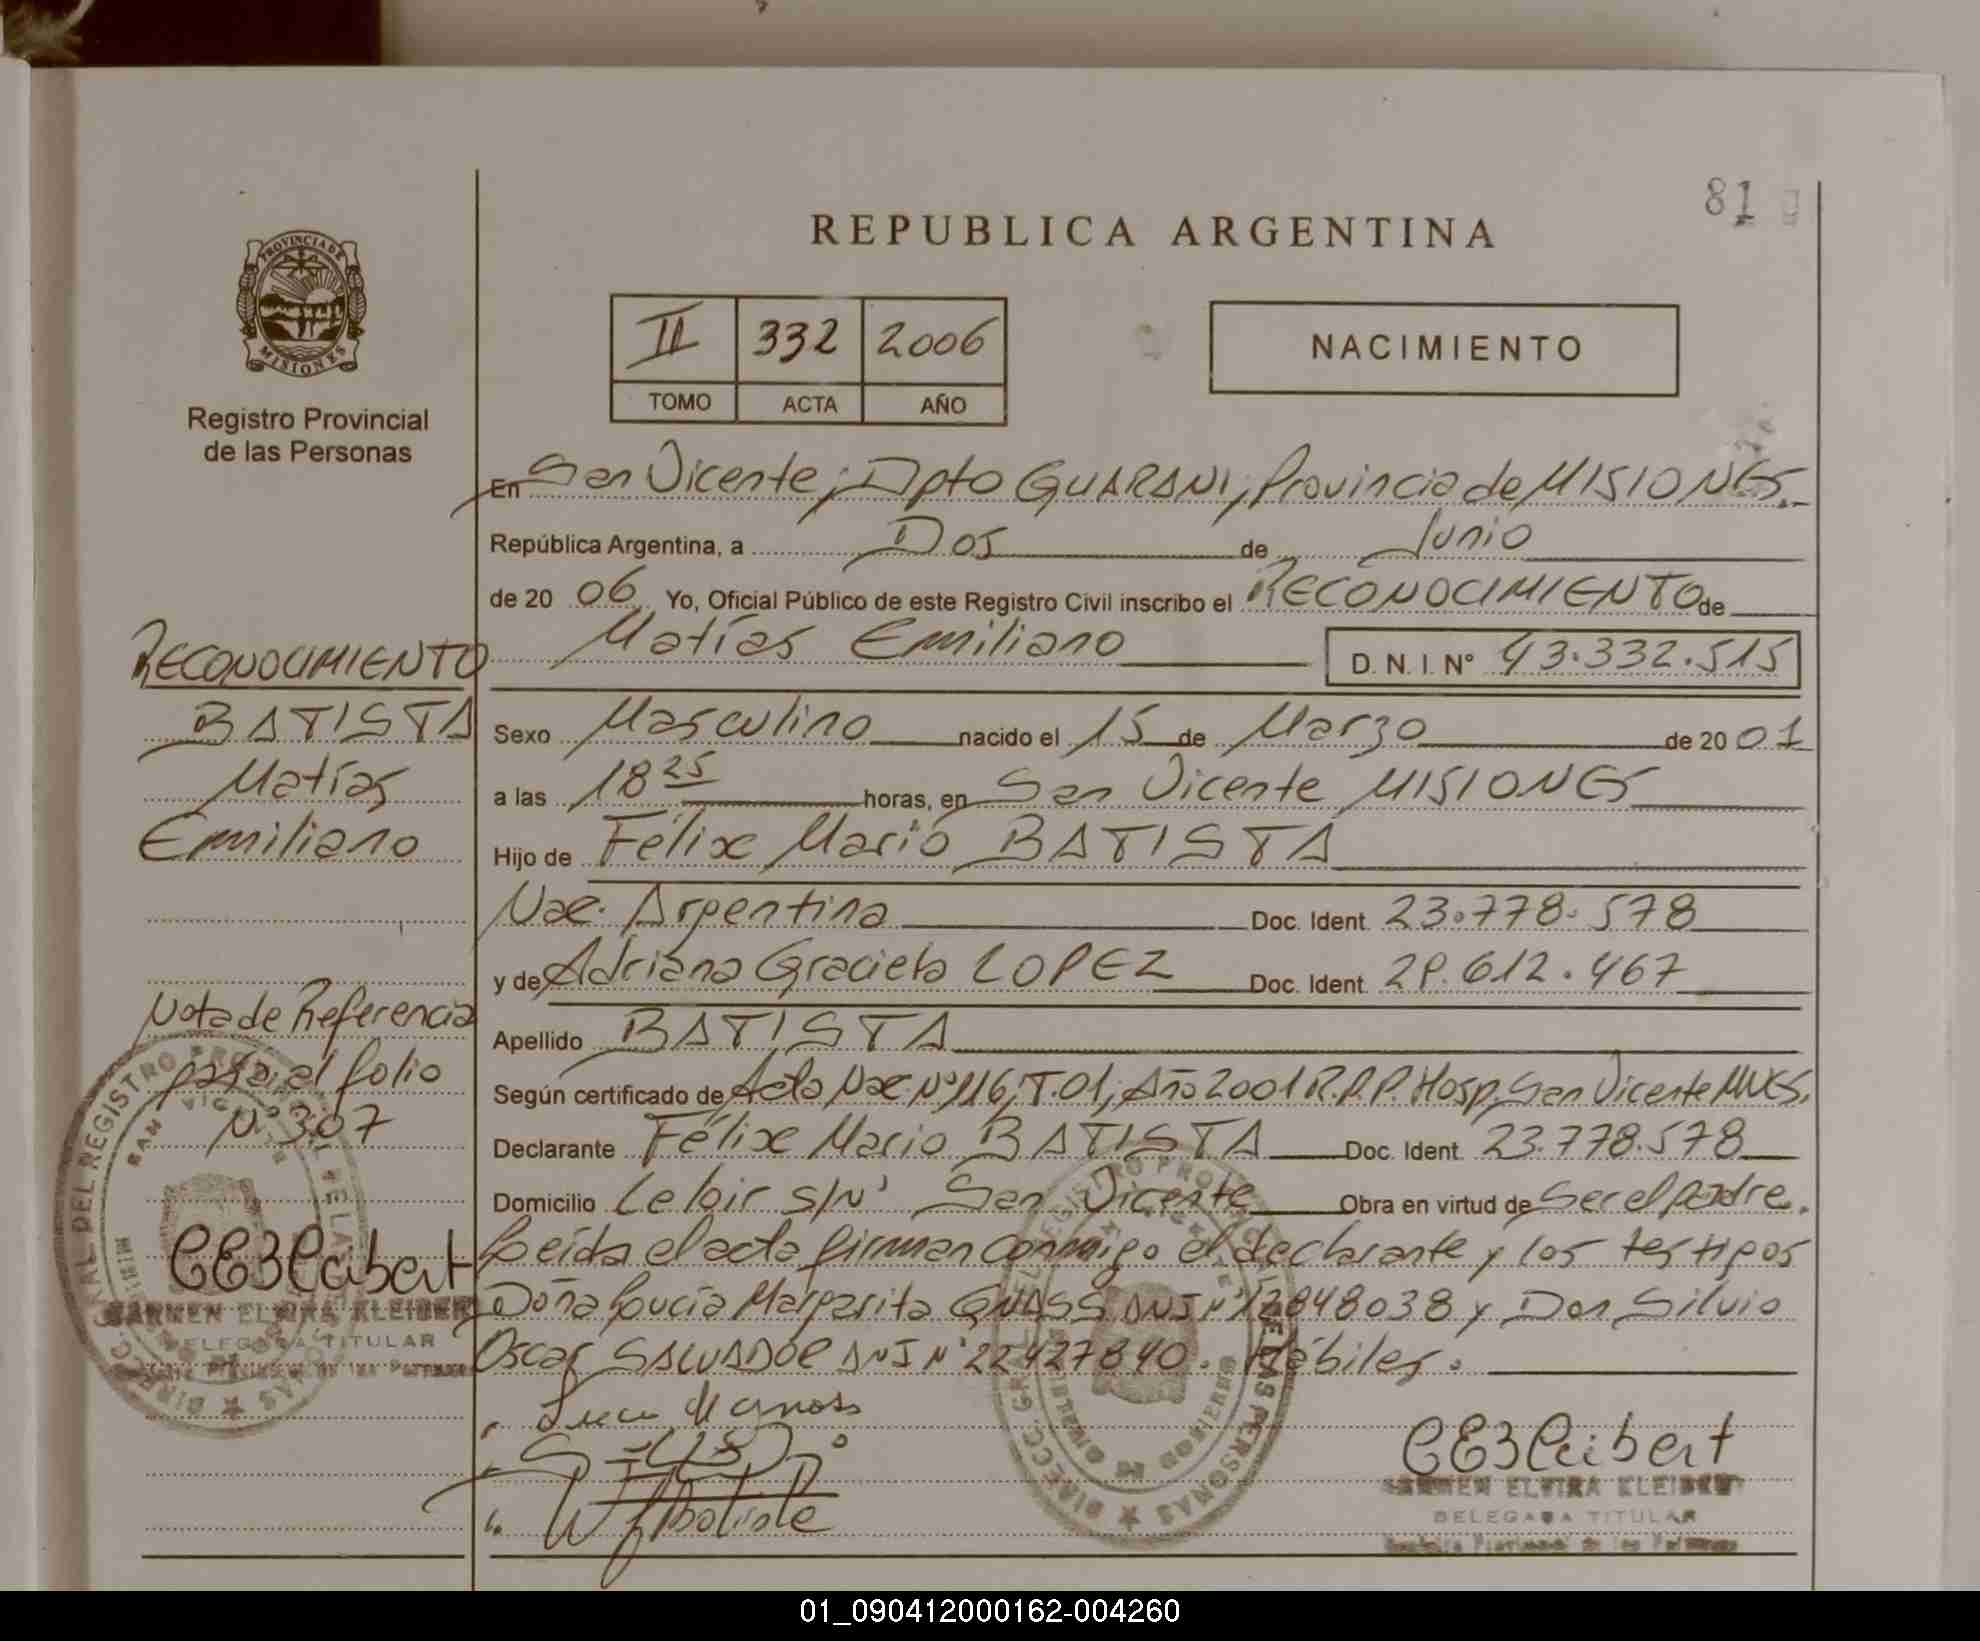 81
REPUBLICA ARGENTINA
PROVINCIA DE
MISIONES
Registro Provincial
de las Personas
II 332 2006
TOMO ACTA AÑO
NACIMIENTO
En San Vicente; Dpto GUARANI, Provincia de MISIONES.
República Argentina, a Dos de Junio
de 20 06 Yo, Oficial Público de este Registro Civil inscribo el RECONOCIMIENTO de
Matías Emiliano D. N. I. N° 43.332.515
Sexo Masculino nacido el 15 de Marzo de 20 01
a las 18 25 horas, en San Vicente MISIONES
Hijo de Félix Mario BATISTA
Nac. Argentina Doc. Ident. 23.778.578
y de Adriana Graciela LOPEZ Doc. Ident. 29.612.467
Apellido BATISTA
Según certificado de Acta Nac. N° 116, T. 01, Año 2001 R.P.P. Hosp. San Vicente MNES.
Declarante Félix Mario BATISTA Doc. Ident. 23.778.578
Domicilio Leloir s/N° San Vicente Obra en virtud de Ser el padre.
Leída el acta firman conmigo el declarante y los testigos
Doña Lucía Margarita DNI N° 12848038 y Don Silvio
Oscar SALVADOR DNI N° 22427840. Hábiles.
RECONOCIMIENTO
BATISTA
Matías
Emiliano
Nota de Referencia
pasa al folio
N° 307
CARMEN ELVIRA KLEIBERT
DELEGADA TITULAR
Registro Provincial de las Personas
CARMEN ELVIRA KLEIBERT
DELEGADA TITULAR
Registro Provincial de las Personas
01_090412000162-004260